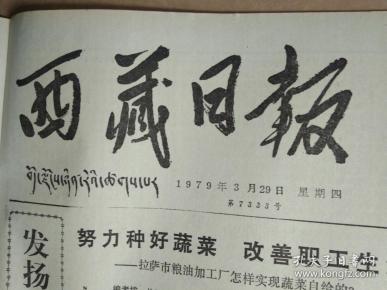 西藏日報
1979年3月29日 星期四
第7323号
努力种好蔬菜 改善职工生
——拉萨市粮油加工厂怎样实现蔬菜自给的?
编者按
发扬
孔夫子旧书网